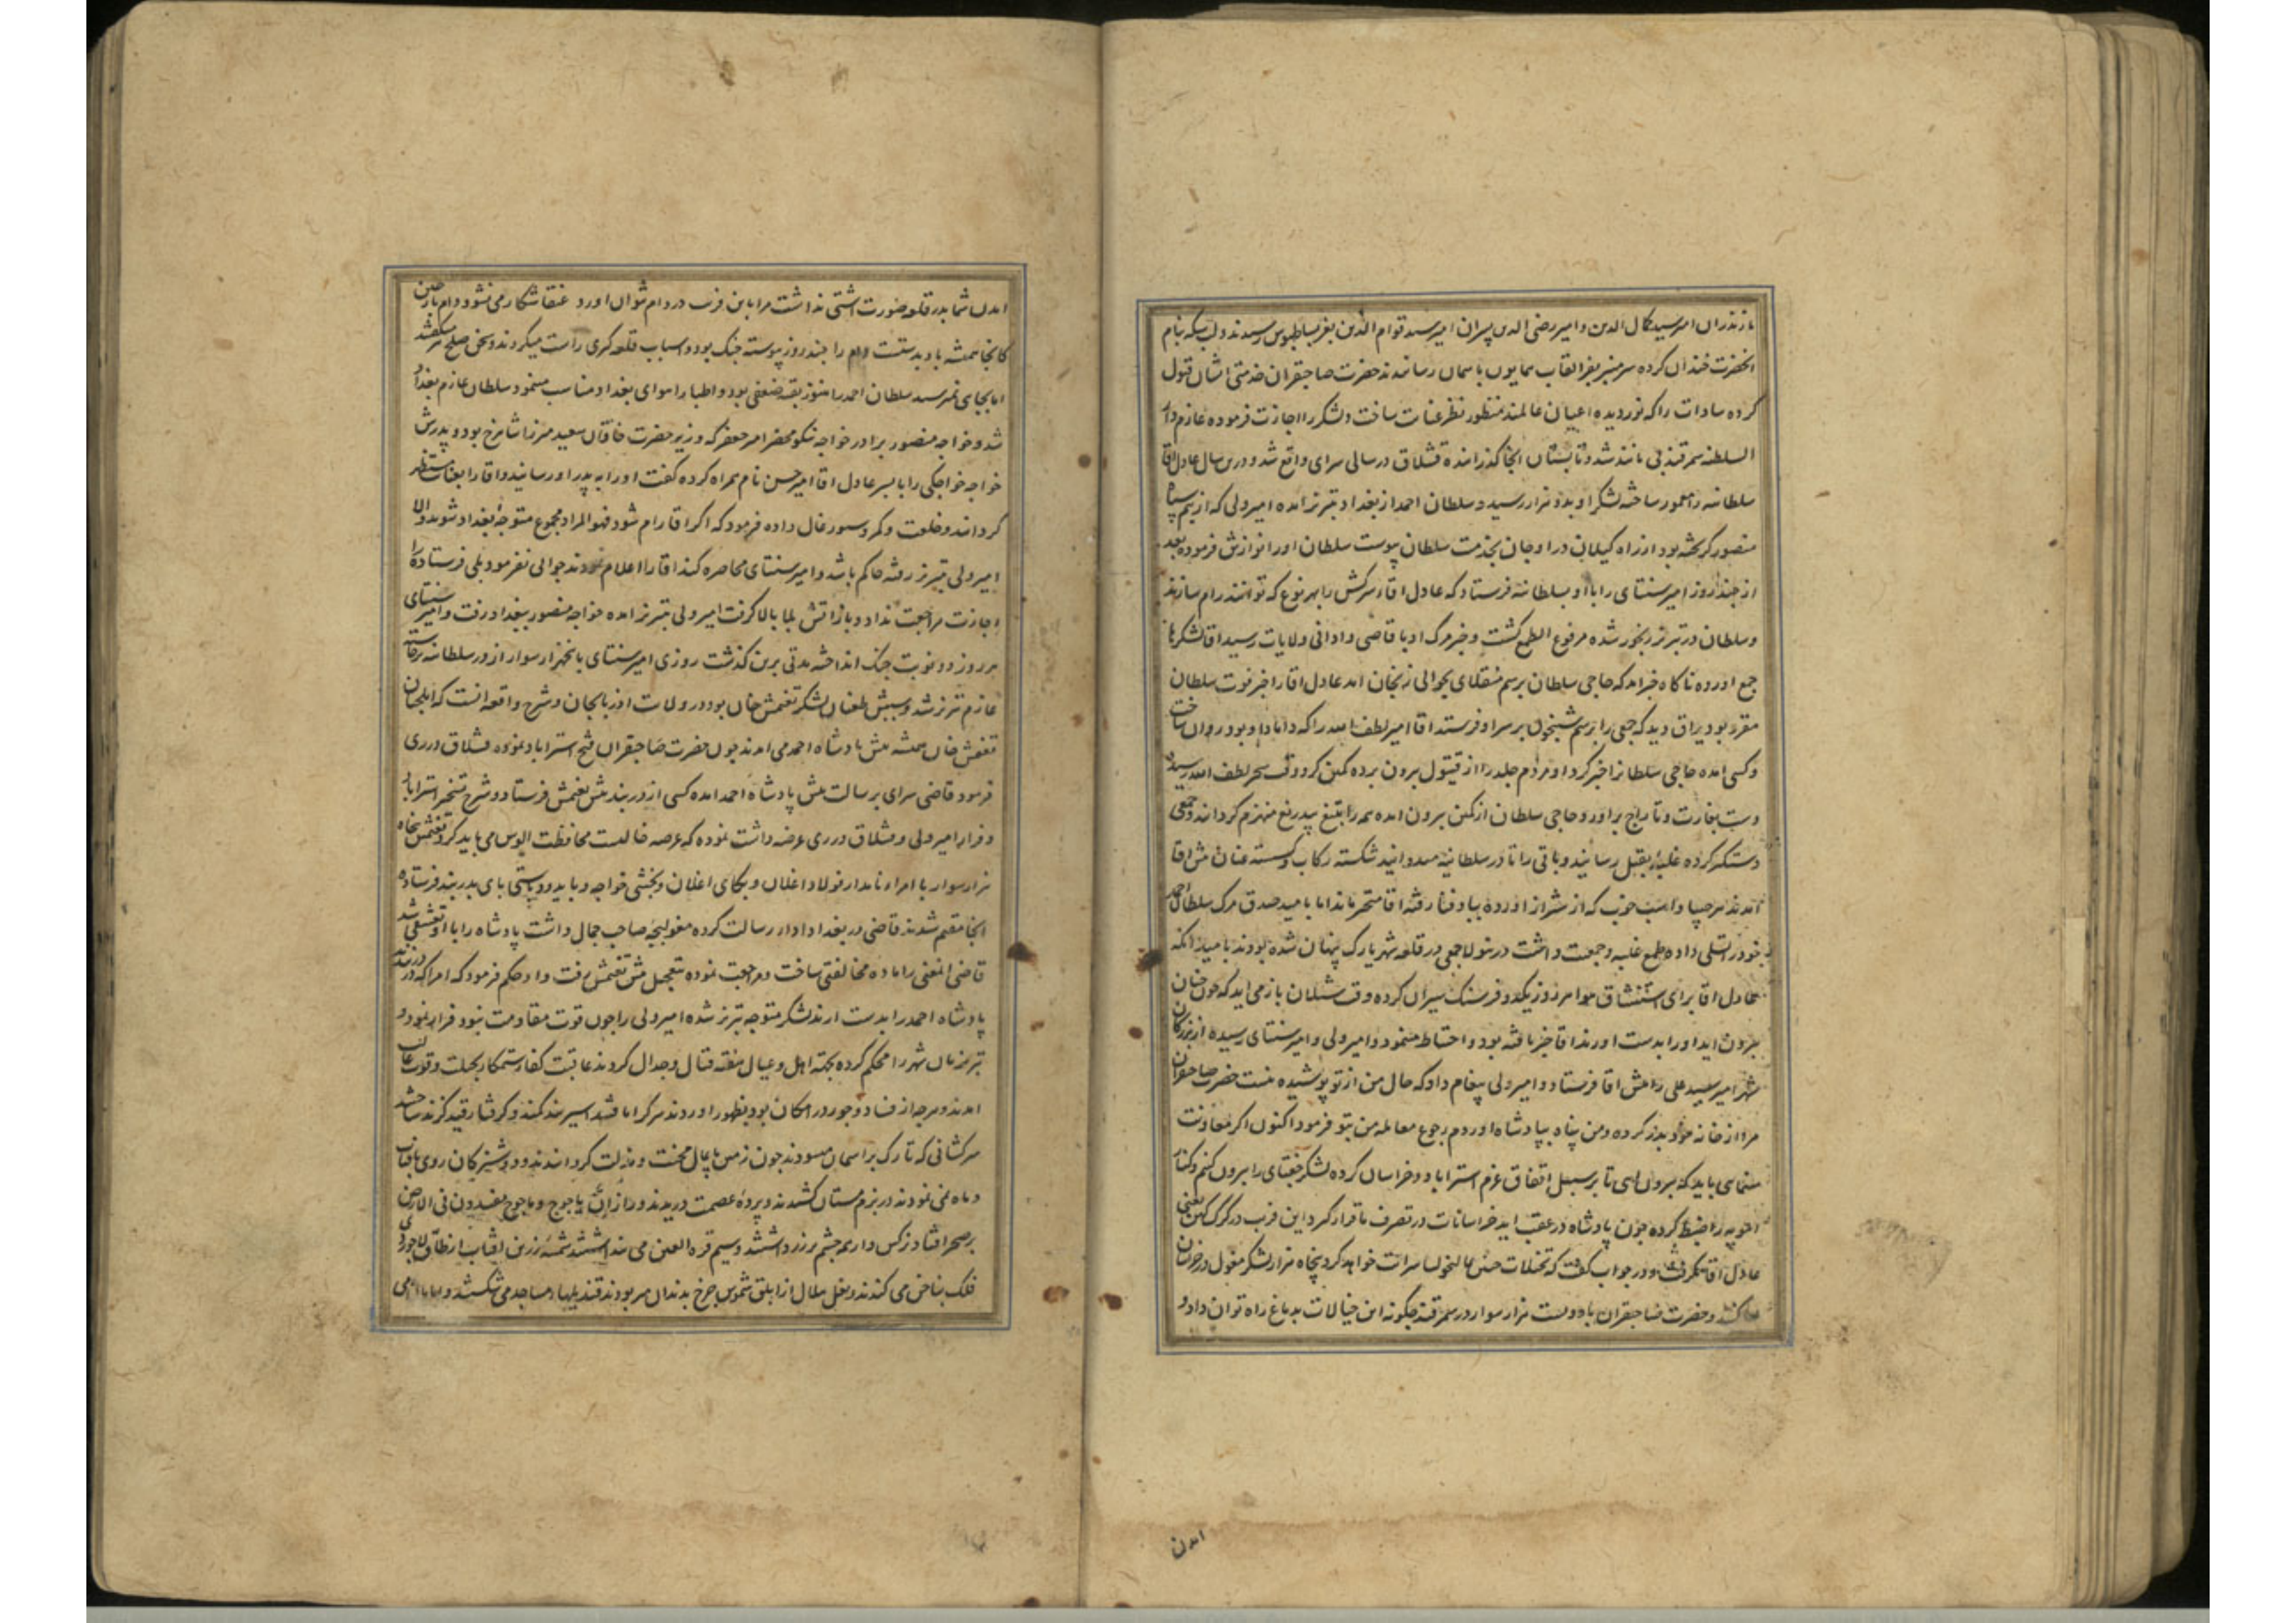 مازندران امیر سید کمال الدین و امیر رضی الدین پسران امیر سید قوام الدین بعز بساطبوس رسیدند و لب سکه بنام
آنحضرت خندان کرده سر منبر بفر القاب همایون باسمان رسانیدند حضرت صاحبقران خدمتی ایشان قبول
کرده سادات را که نور دیده اعیان عالمند منظور نظر عنایت ساخت و لشکر را اجازت فرموده عازم دار
السلطنه سمرقند بی مانند شد و تابستان آنجا گذرانده قشلاق در سالی سرای واقع شد و درین سال عادل اقا
سلطانیه را معمور ساخته لشکر او بده هزار رسید و سلطان احمد از بغداد و تبریز آمده امیر ولی که از بیم سپاه
منصور گریخته بود از راه گیلان در اوجان بخدمت سلطان پیوست سلطان او را نوازش فرموده بعد
از چند روز امیر سنتای را با او بسلطانیه فرستاد که عادل اقاء سرکش را بهر نوع که توانند رام سازند
و سلطان در تبریز رنجور شده مرفوع الطمع گشت و خبر مرگ او باقاصی و ادانی ولایات رسید اقا لشکرها
جمع آورده ناگاه خبر آمد که حاجی سلطان برسم منقلای بحوالی زنجان آمد عادل اقا را خبر فوت سلطان
مقرر بود یراق دید که جمعی را برسم شبیخون بر سر او فرستد اقا امیر لطف الله را که داماد او بود روان ساخت
و کسی آمده حاجی سلطانرا خبر کرد او مردم جلد را از قیتول بیرون برده کمین کرد و وقت سحر لطف الله رسیده
دست بغارت و تاراج برآورد و حاجی سلطان از کمین بیرون آمده همه را بتیغ بیدریغ منهزم گردانید و جمعی
دستگیر کرده غلبه بقتل رسانید و باقی را تا در سلطانیه میدوانید شکسته رکاب و گسسته عنان پیش اقا
آمدند هر جیبا و اسب خوب که از شیراز آورده بباد فنا رفته اقا متحیر ماند اما بامید صدق مرگ سلطان احمد
خود را تسلی داده طمع غلبه و جمعیت داشت درینولا جمعی در قلعه شهریارک پنهان شده بودند بامید آنکه
عادل اقا برای استنشاق هوا هر روز یکدو فرسنگ سیران کرده وقت شیلان باز می آید که چون چنان
بیرون آید او را بدست آورند اقا خبر یافته بود و احتیاط مینمود و امیر ولی و امیر سنتای رسیده از بزرگان
شهر امیر سید علی را پیش اقا فرستاد و امیر ولی پیغام داد که حال من از تو پوشیده نیست حضرت صاحبقران
مرا از خانه خود بدر کرده و من پناه بپادشاه آوردم رجوع معامله من بتو فرمود اکنون اگر معاونت
مینمایی باید که بیرون آیی تا بر سبیل اتفاق عزم استراباد و خراسان کرده لشکر جغتای را بیرون کنیم و کنار
آمویه را ضبط کرده چون پادشاه در عقب آید خراسانات در تصرف ما قرار گیرد این فریب در گرگ کهن یعنی
عادل اقا نگرفت و در جواب گفت که تخیلات چنین مالیخولیا سرایت خواهد کرد پنجاه هزار لشکر مغول در خراسان
ساکنند و حضرت صاحبقران با دویست هزار سوار در سمرقند چگونه این خیالات بدماغ راه توان داد و
آمدن
آمدن شما بدر قلعه ضورت آشتی نداشت مرا باین فریب در دام نتوان آورد عنقا شکار می نشود دام باز چین
کانجا همیشه باد بدستست دام را چند روز پیوسته جنگ بود و اسباب قلعه گیری راست میکردند و سخن صلح میگفتند
اما بجای نمیرسید سلطان احمد را هنوز بقیه ضعفی بود و اطبا را هوای بغداد مناسب مینمود سلطان عازم بغداد
شد و خواجه منصور برادر خواجه نیکو محضر امیر جعفر که وزیر حضرت خاقان سعید میرزا شاهرخ بود و پدرش
خواجه خواجکی را با پسر عادل اقا امیر حسن نام همراه کرده گفت او را به پدر او رسانید و اقا را بعنایت مستظهر
گردانید و خلعت و کمر و سیورغال داده فرمود که اگر اقا رام شود فهو المراد مجموع متوجه بغداد شوند و الا
امیر ولی بتبریز رفته حاکم باشد و امیر سنتای محاصره کند اقا را اعلام نمودند جوابی نفرمود بلی فرستاده را
اجازت مراجعت نداد و باز آتش بلا بالا گرفت امیر ولی تبریز آمده خواجه منصور ببغداد رفت و امیر سنتای
هر روز دو نوبت جنگ انداخته مدتی برین گذشت روزی امیر سنتای با پنجهزار سوار از در سلطانیه برخاسته
عازم تبریز شد و سببش طغیان لشکر تغتمش خان بود در ولایت آذربایجان و شرح واقعه آنست که ایلچیان
تغتمش خان همیشه پیش پادشاه احمد می آمدند چون حضرت صاحبقران فتح استراباد نموده قشلاق در ری
فرمود قاضی سرای برسالت پیش پادشاه احمد آمده کسی از دربند پیش تغتمش فرستاد و شرح تسخیر استراباد
و فرار امیر ولی و قشلاق در ری عرضه داشت نموده که عرصه خالیست محافظت الوس می باید کرد تغتمش پنجاه
هزار سوار با امراء نامدار فولاد اغلان و بکای اغلان و بخشی خواجه و بایدو و یاستی بای بدربند فرستاده
آنجا مقیم شدند قاضی در بغداد ادای رسالت کرده مغولبچه صاحب جمال داشت پادشاه را با او تعشقی شد
قاضی آنمعنی را ماده مخالفتی ساخت و مراجعت نموده بتعجیل پیش تغتمش رفت و او حکم فرمود که امرا که در دربندند
پادشاه احمد را بدست آرند لشکر متوجه تبریز شده امیر ولی را چون قوت مقاومت نبود فرار نمود و
تبریزیان شهر را محکم کرده بجهة اهل و عیال هفته قتال و جدال کردند عاقبت کفار ستمکار بحیلت و قوت غالب
آمدند و هرچه از فساد و جور در امکان بود بظهور آوردند هر کرا یافتند اسیر بند کمند و گرفتار قید گزند ساختند
سرکشانی که تارک بر آسمان میسودند چون زمین پایمال محنت و مذلت گردانیدند و دوشیزگان روی بآفتاب
و ماه نمی نمودند در بزم مستان کشیدند و پرده عصمت دریدند و راز ان یاجوج و ماجوج مفسدون فی الارض
بر صحرا افتاد نرگس وار هر چشم بر زر داشتند و سیم قرة العین می پنداشتند شمسه زرین آفتاب از طاق لاجوردی
فلک بناخن می کندند و نعل هلال از ابلق شموس چرخ بدندان میربودند قندیلها در مساجد می شکستند و امامان می